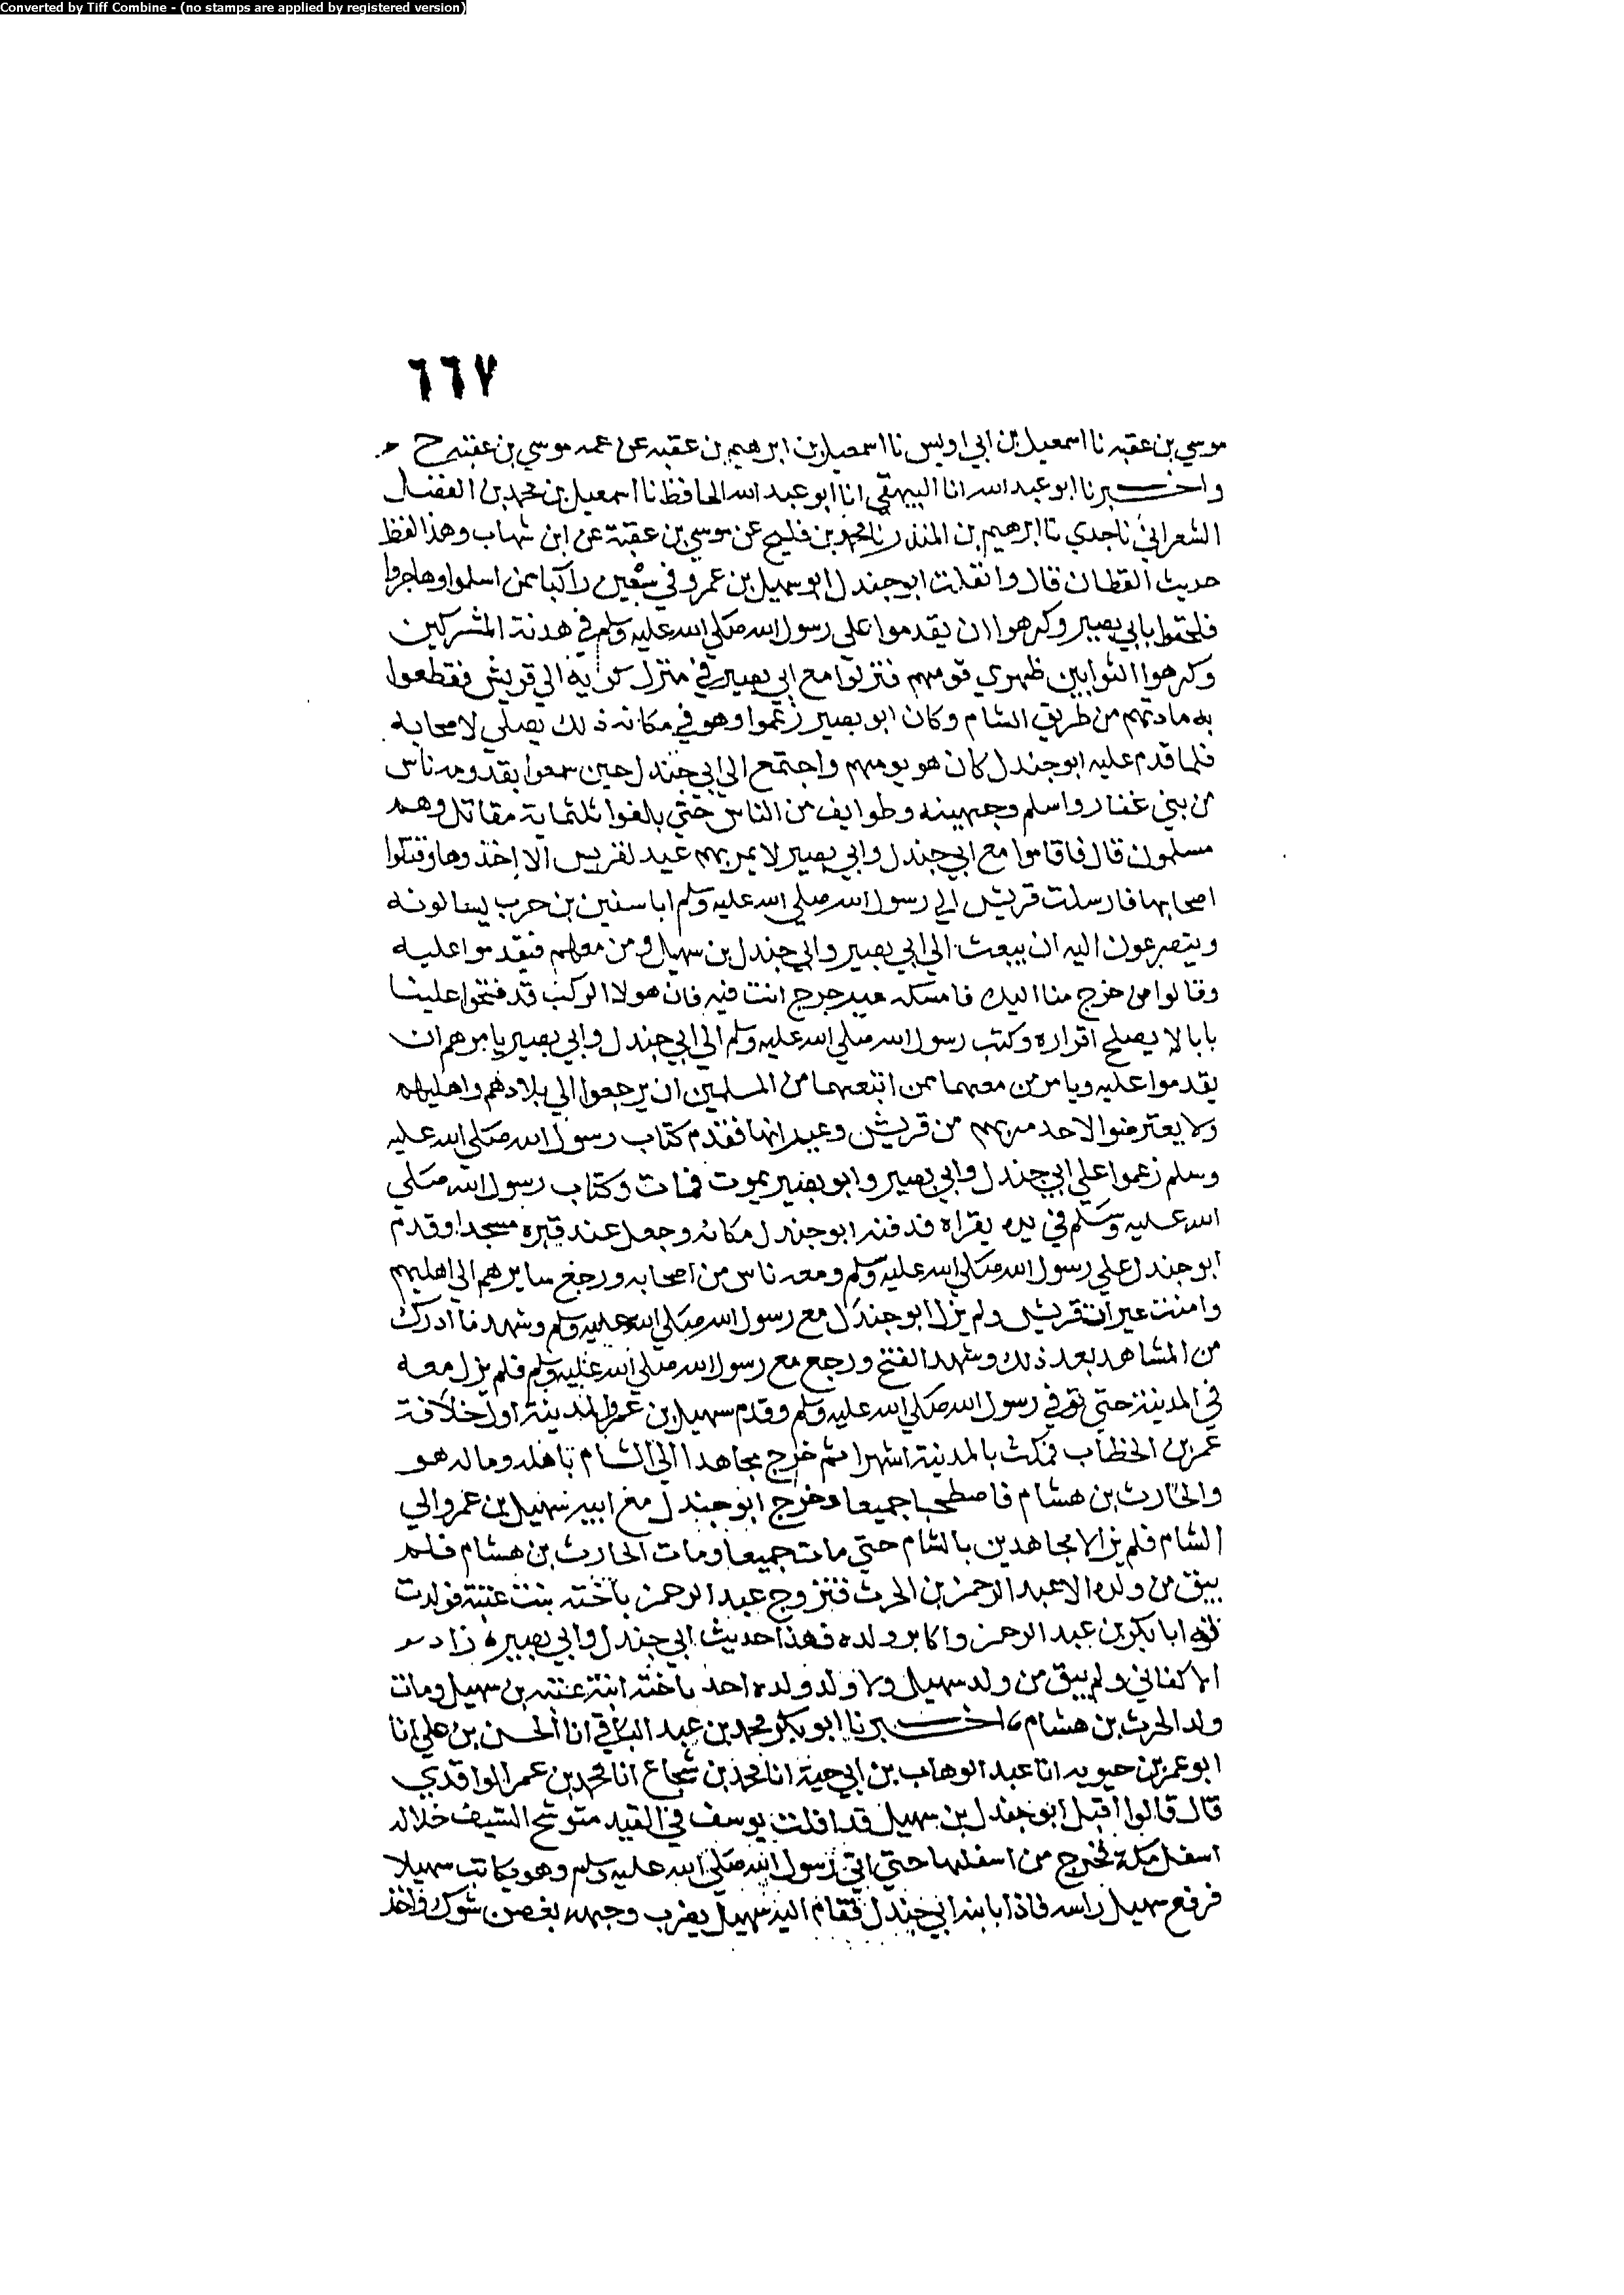 Converted by Tiff Combine - (no stamps are applied by registered version)
٦٦٧
موسي بن عقبه نا اسمعيل بن ابي اويس نا اسمعيل بن ابرهيم بن عقبه عن عمه موسي بن عقبه ح
واخبرنا ابو عبد الله انا البيهقي انا ابو عبد الله الحافظ نا اسمعيل بن محمد بن الفضل
الشعراني نا جدي نا ابرهيم بن المنذر نا محمد بن فليح عن موسي بن عقبة عن ابن شهاب وهذا لفظ
حديث القطان قال وانفلت ابو جندل بن سهيل بن عمرو في سبعين راكبا ممن اسلموا وهاجروا
فلحقوا بابي بصير وكرهوا ان يقدموا علي رسول الله صلي الله عليه وسلم في هدنة المشركين
وكرهوا الثوا بين ظهري قومهم فنزلوا مع ابي بصير في منزل كريه الي قريش فقطعوا
به مادتهم من طريق الشام وكان ابو بصير زعموا وهو في مكانه ذلك يصلي لاصحابه
فلما قدم عليه ابو جندل كان هو يومهم واجتمع الي ابي جندل حين سمعوا بقدومه ناس
من بني غفار واسلم وجهينه وطوايف من الناس حتي بلغوا ثلثماية مقاتل وهم
مسلمون قال فاقاموا مع ابي جندل وابي بصير لا يمر بهم عير لقريش الا اخذوها وقتلوا
اصحابها فارسلت قريش الي رسول الله صلي الله عليه وسلم ابا سفين بن حرب يسالونه
ويتضرعون اليه ان يبعث الي ابي بصير وابي جندل بن سهيل ومن معهم فيقدموا عليه
وقالوا من خرج منا اليك فامسكه غير حرج انت فيه فان هولا الركب قد فتحوا علينا
بابا لا يصلح اقراره وكتب رسول الله صلي الله عليه وسلم الي ابي جندل وابي بصير يامرهم ان
يقدموا عليه ويامر من معهما ممن اتبعهما من المسلمين ان يرجعوا الي بلادهم واهليهم
ولا يعترضوا لاحد مر بهم من قريش وعيراتها فقدم كتاب رسول الله صلي الله عليه
وسلم زعموا علي ابي جندل وابي بصير وابو بصير يموت فمات وكتاب رسول الله صلي
الله عليه وسلم في يده يقراه فدفنه ابو جندل مكانه وجعل عند قبره مسجدا وقدم
ابو جندل علي رسول الله صلي الله عليه وسلم ومعه ناس من اصحابه ورجع سايرهم الي اهليهم
وامنت عيرات قريش ولم يزل ابو جندل مع رسول الله صلي الله عليه وسلم وشهد ما ادرك
من المشاهد بعد ذلك وشهد الفتح ورجع مع رسول الله صلي الله عليه وسلم فلم يزل معه
في المدينة حتي توفي رسول الله صلي الله عليه وسلم وقدم سهيل بن عمرو المدينة اول خلافة
عمر بن الخطاب فمكث بالمدينة اشهرا ثم خرج مجاهدا الي الشام باهله وماله هو
والحارث بن هشام فاصطحبا جميعا وخرج ابو جندل مع ابيه سهيل بن عمرو الي
الشام فلم يزالا مجاهدين بالشام حتي ماتا جميعا ومات الحارث بن هشام فلم
يبق من ولده الا عبد الرحمن بن الحرث فتزوج عبد الرحمن باخته بنت عتبة فولدت
له ابا بكر بن عبد الرحمن واكابر ولده فهذا حديث ابي جندل وابي بصير ه زاد
الاكفاني ولم يبق من ولد سهيل ولا ولد ولده احد باخته ابنة عتبه بن سهيل ومات
ولد الحرث بن هشام اخبرنا ابو بكر محمد بن عبد الباقي انا الحسن بن علي انا
ابو عمر بن حيويه انا عبد الوهاب بن ابي حية انا محمد بن شجاع انا محمد بن عمر الواقدي
قال قالوا اقبل ابو جندل بن سهيل قد افلت يوسف في القيد متوشح السيف خلاله
اسفل مكة فخرج من اسفلها حتي اتي رسول الله صلي الله عليه وسلم وهو يكاتب سهيلا
فرفع سهيل راسه فاذا بابنه ابي جندل فقام اليه سهيل يضرب وجهه بغصن شوك واخذ